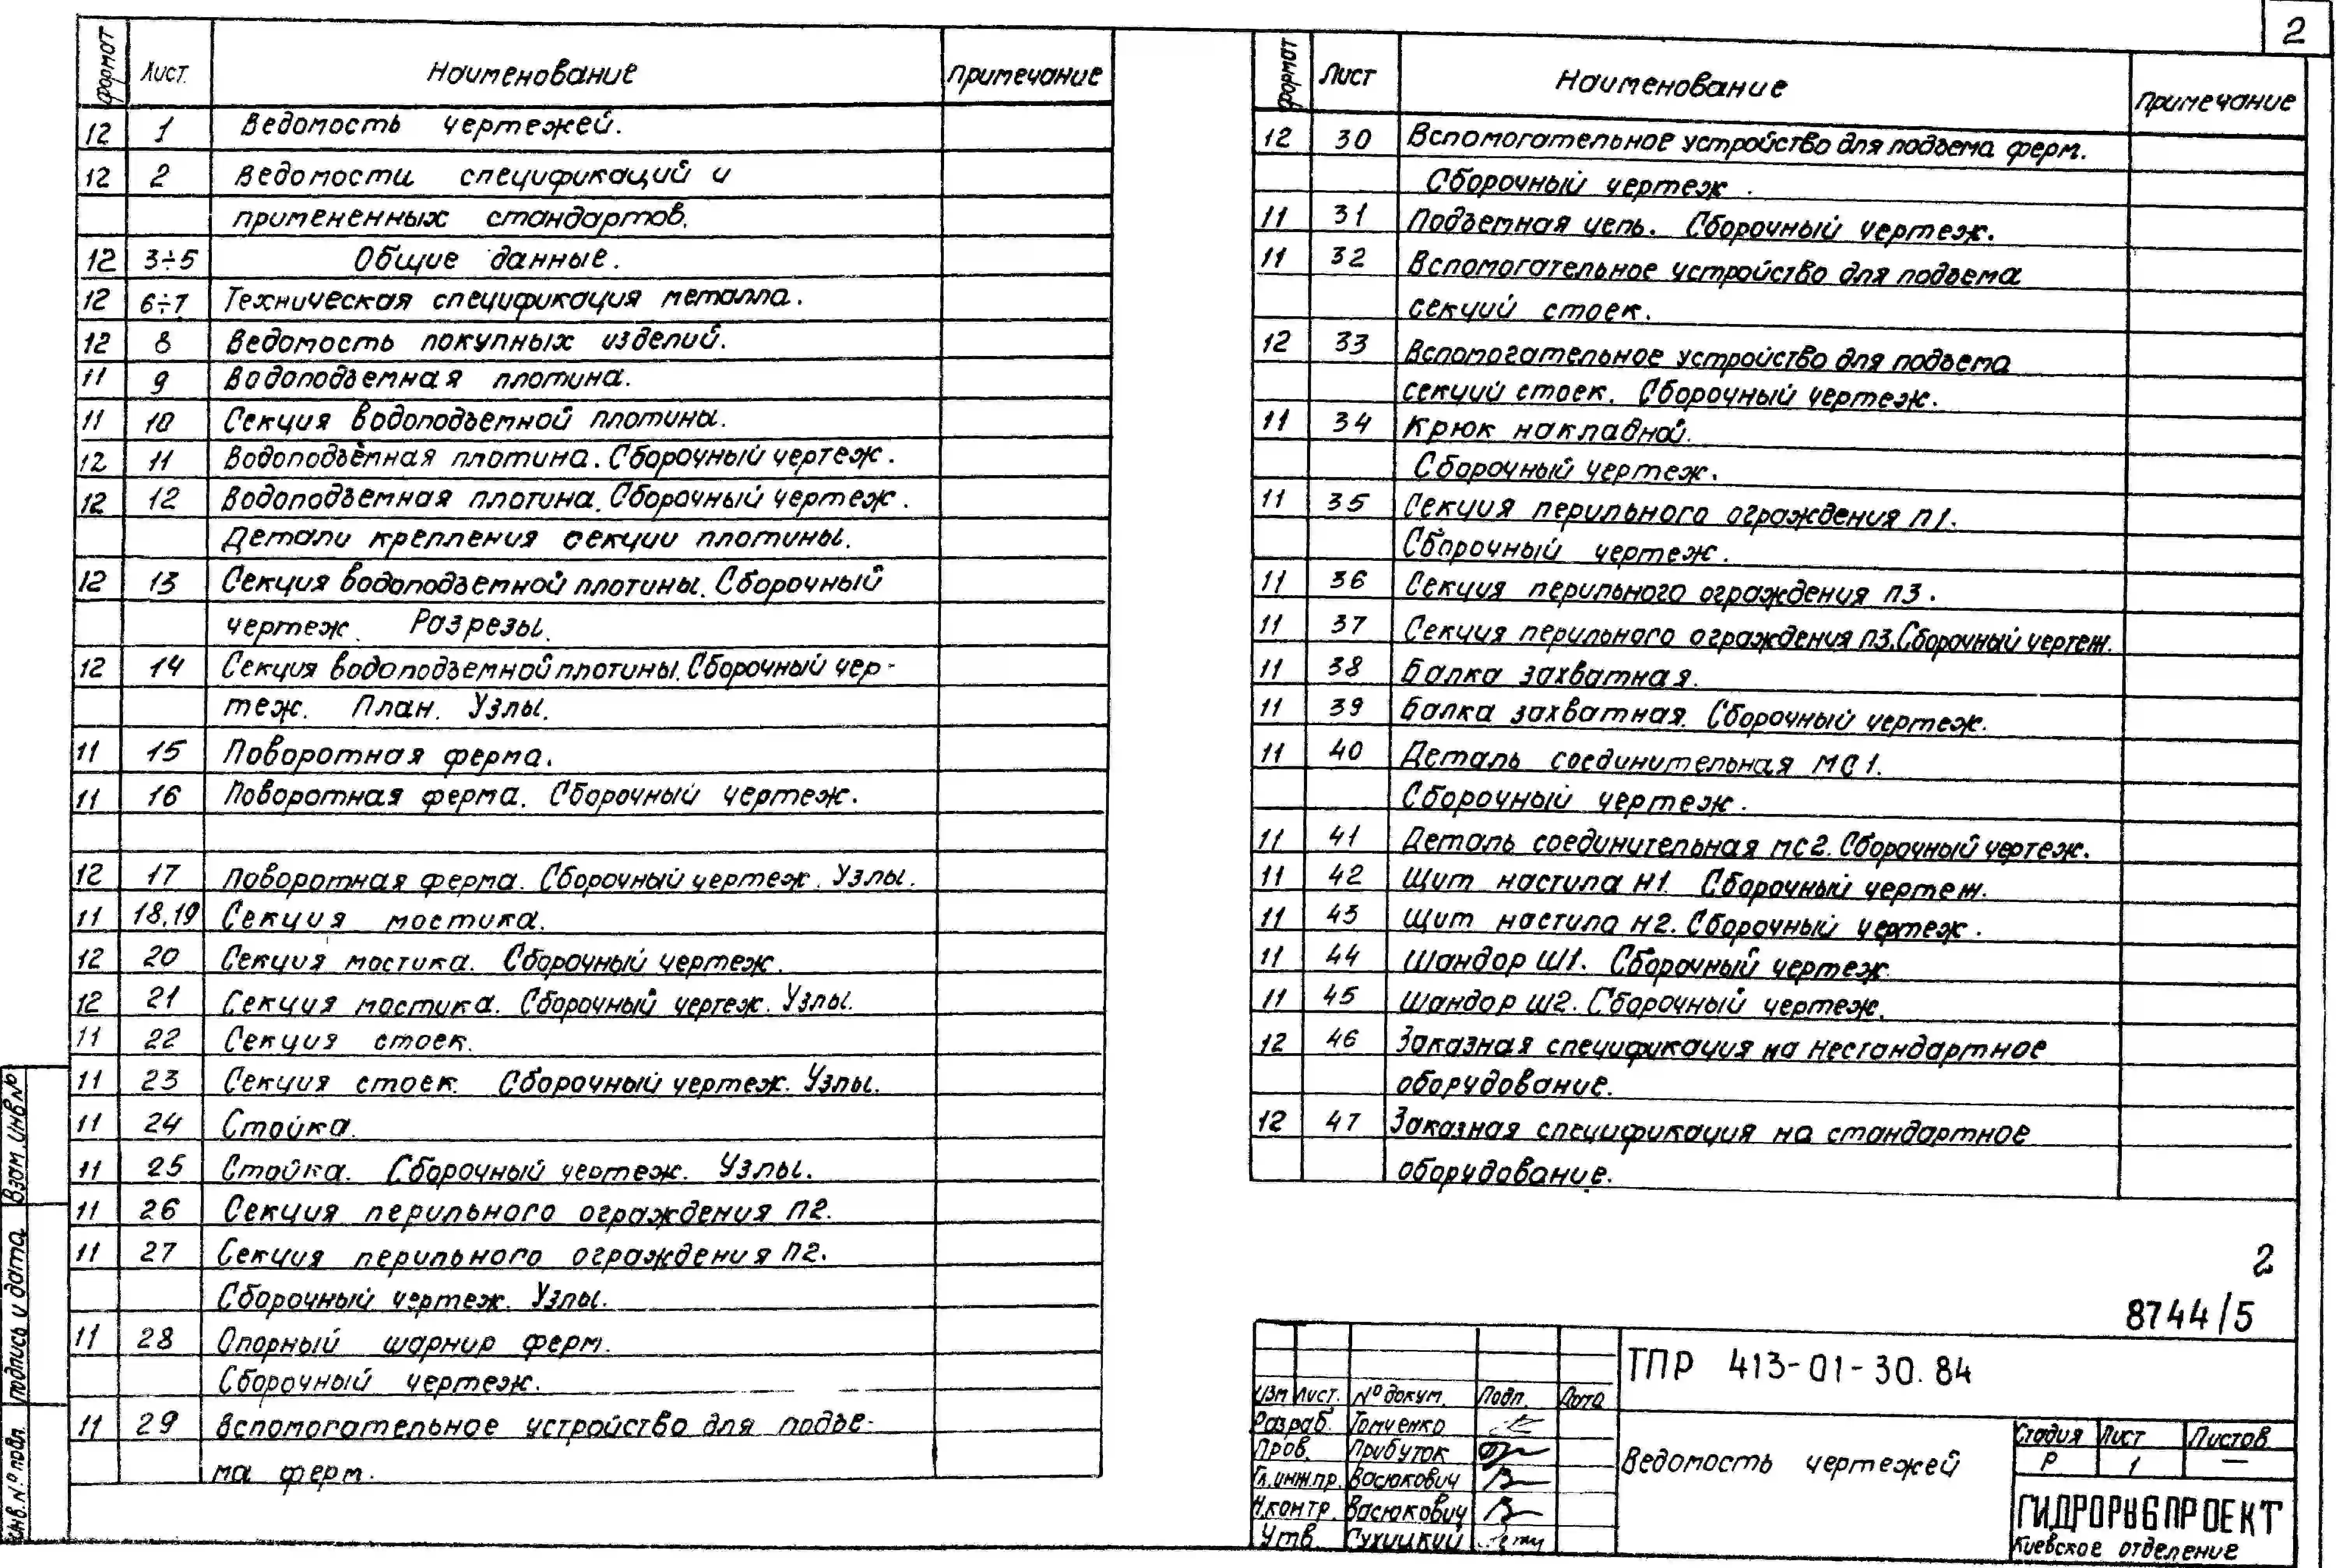 2
формат Лист. Наименование примечание
12 1 Ведомость чертежей.
12 2 Ведомости спецификаций и
примененных стандартов.
12 3÷5 Общие данные.
12 6÷7 Техническая спецификация металла.
12 8 Ведомость покупных изделий.
11 9 Водоподъемная плотина.
11 10 Секция водоподъемной плотины.
12 11 Водоподъёмная плотина. Сборочный чертеж.
12 12 Водоподъемная плотина. Сборочный чертеж.
Детали крепления секции плотины.
12 13 Секция водоподъемной плотины. Сборочный
чертеж. Разрезы.
12 14 Секция водоподъемной плотины. Сборочный чер-
теж. План. Узлы.
11 15 Поворотная ферма.
11 16 Поворотная ферма. Сборочный чертеж.
12 17 Поворотная ферма. Сборочный чертеж. Узлы.
11 18,19 Секция мостика.
12 20 Секция мостика. Сборочный чертеж.
12 21 Секция мостика. Сборочный чертеж. Узлы.
11 22 Секция стоек.
11 23 Секция стоек. Сборочный чертеж. Узлы.
11 24 Стойка.
11 25 Стойка. Сборочный чертеж. Узлы.
11 26 Секция перильного ограждения П2.
11 27 Секция перильного ограждения П2.
Сборочный чертеж. Узлы.
11 28 Опорный шарнир ферм.
Сборочный чертеж.
11 29 Вспомогательное устройство для подъе-
ма ферм.
формат Лист Наименование Примечание
12 30 Вспомогательное устройство для подъема ферм.
Сборочный чертеж.
11 31 Подъемная цепь. Сборочный чертеж.
11 32 Вспомогательное устройство для подъема
секций стоек.
12 33 Вспомогательное устройство для подъема
секций стоек. Сборочный чертеж.
11 34 Крюк накладной.
Сборочный чертеж.
11 35 Секция перильного ограждения П1.
Сборочный чертеж.
11 36 Секция перильного ограждения П3.
11 37 Секция перильного ограждения П3. Сборочный чертеж.
11 38 Балка захватная.
11 39 Балка захватная. Сборочный чертеж.
11 40 Деталь соединительная МС1.
Сборочный чертеж.
11 41 Деталь соединительная МС2. Сборочный чертеж.
11 42 Щит настила Н1. Сборочный чертеж.
11 43 Щит настила Н2. Сборочный чертеж.
11 44 Шандор Ш1. Сборочный чертеж
11 45 Шандор Ш2. Сборочный чертеж.
12 46 Заказная спецификация на нестандартное
оборудование.
12 47 Заказная спецификация на стандартное
оборудование.
2
8744/5
ТПР 413-01-30.84
Изм Лист. № докум. Подп. Дата
Разраб. Томченко
Пров. Прибуток
Гл.инж.пр. Васюкович
Н.контр. Васюкович
Утв. Сухицкий
Ведомость чертежей
Стадия Лист Листов
Р 1 —
ГИДРОРЫБПРОЕКТ
Киевское отделение
Взам. инв №
Подпись и дата
Инв. № подл.